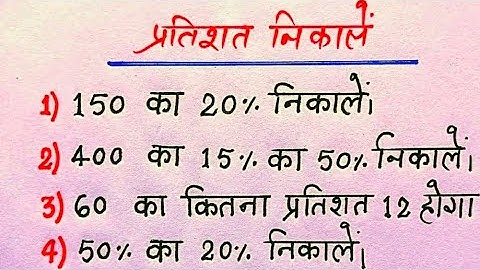 प्रतिशत निकालें
1) 150 का 20% निकालें।
2) 400 का 15% का 50% निकालें।
3) 60 का कितना प्रतिशत 12 होगा
4) 50% का 20% निकालें।